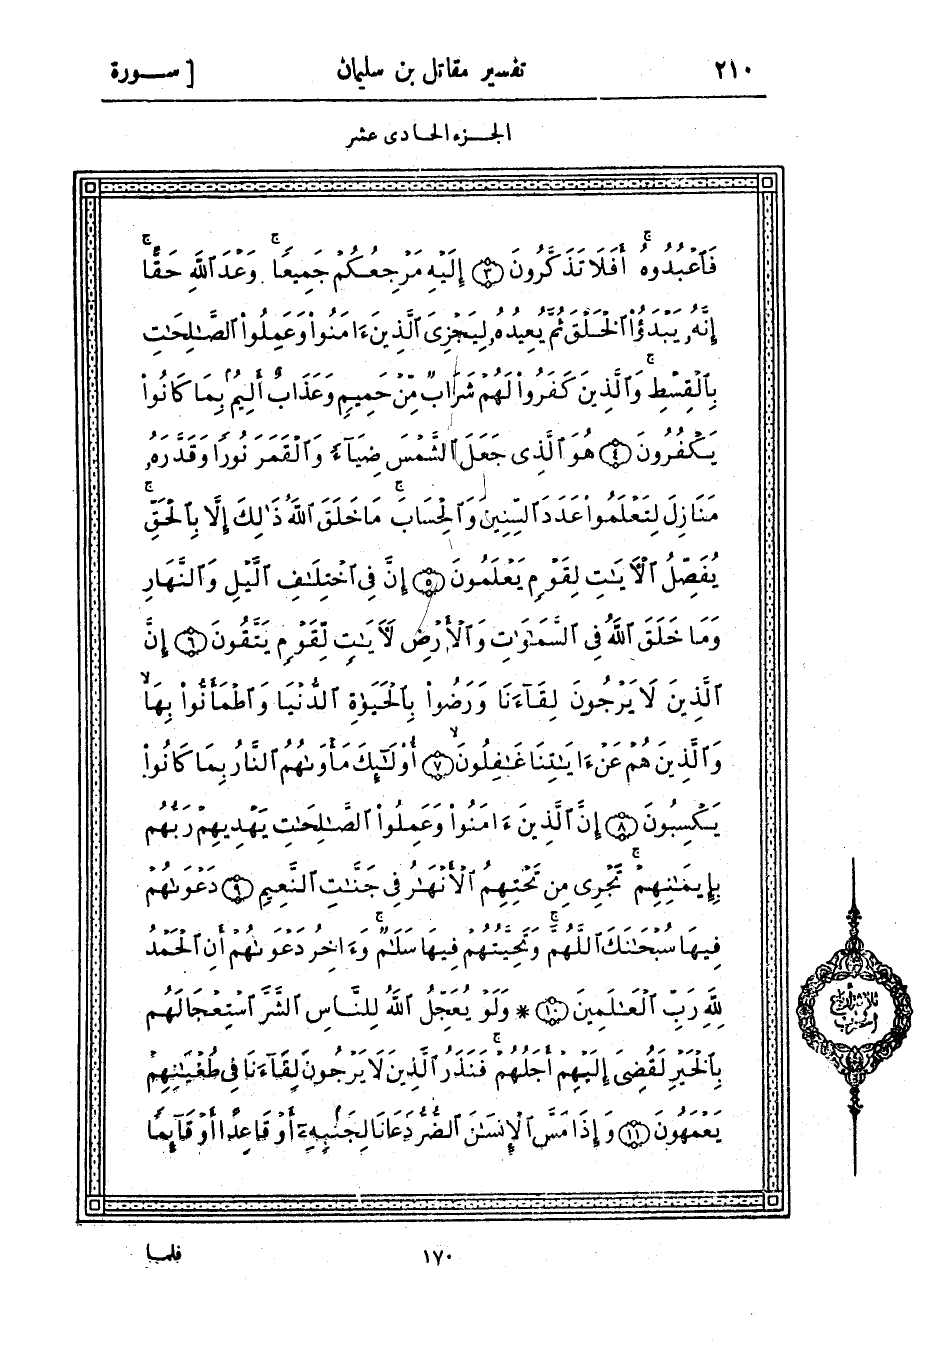 ٢١٠ تفسير مقاتل بن سليمان [ ســورة
الجـزء الحادى عشر
فَٱعْبُدُوهُ ۚ أَفَلَا تَذَكَّرُونَ ﴿٣﴾ إِلَيْهِ مَرْجِعُكُمْ جَمِيعًا ۖ وَعْدَ ٱللَّهِ حَقًّا ۚ
إِنَّهُۥ يَبْدَؤُا۟ ٱلْخَلْقَ ثُمَّ يُعِيدُهُۥ لِيَجْزِىَ ٱلَّذِينَ ءَامَنُوا۟ وَعَمِلُوا۟ ٱلصَّـٰلِحَـٰتِ
بِٱلْقِسْطِ ۚ وَٱلَّذِينَ كَفَرُوا۟ لَهُمْ شَرَابٌ مِّنْ حَمِيمٍ وَعَذَابٌ أَلِيمٌۢ بِمَا كَانُوا۟
يَكْفُرُونَ ﴿٤﴾ هُوَ ٱلَّذِى جَعَلَ ٱلشَّمْسَ ضِيَآءً وَٱلْقَمَرَ نُورًا وَقَدَّرَهُۥ
مَنَازِلَ لِتَعْلَمُوا۟ عَدَدَ ٱلسِّنِينَ وَٱلْحِسَابَ ۚ مَا خَلَقَ ٱللَّهُ ذَٰلِكَ إِلَّا بِٱلْحَقِّ ۚ
يُفَصِّلُ ٱلْـَٔايَـٰتِ لِقَوْمٍ يَعْلَمُونَ ﴿٥﴾ إِنَّ فِى ٱخْتِلَـٰفِ ٱلَّيْلِ وَٱلنَّهَارِ
وَمَا خَلَقَ ٱللَّهُ فِى ٱلسَّمَـٰوَٰتِ وَٱلْأَرْضِ لَـَٔايَـٰتٍ لِّقَوْمٍ يَتَّقُونَ ﴿٦﴾ إِنَّ
ٱلَّذِينَ لَا يَرْجُونَ لِقَآءَنَا وَرَضُوا۟ بِٱلْحَيَوٰةِ ٱلدُّنْيَا وَٱطْمَأَنُّوا۟ بِهَا
وَٱلَّذِينَ هُمْ عَنْ ءَايَـٰتِنَا غَـٰفِلُونَ ﴿٧﴾ أُو۟لَـٰٓئِكَ مَأْوَىٰهُمُ ٱلنَّارُ بِمَا كَانُوا۟
يَكْسِبُونَ ﴿٨﴾ إِنَّ ٱلَّذِينَ ءَامَنُوا۟ وَعَمِلُوا۟ ٱلصَّـٰلِحَـٰتِ يَهْدِيهِمْ رَبُّهُم
بِإِيمَـٰنِهِمْ ۖ تَجْرِى مِن تَحْتِهِمُ ٱلْأَنْهَـٰرُ فِى جَنَّـٰتِ ٱلنَّعِيمِ ﴿٩﴾ دَعْوَىٰهُمْ
فِيهَا سُبْحَـٰنَكَ ٱللَّهُمَّ وَتَحِيَّتُهُمْ فِيهَا سَلَـٰمٌ ۚ وَءَاخِرُ دَعْوَىٰهُمْ أَنِ ٱلْحَمْدُ
لِلَّهِ رَبِّ ٱلْعَـٰلَمِينَ ﴿١٠﴾ * وَلَوْ يُعَجِّلُ ٱللَّهُ لِلنَّاسِ ٱلشَّرَّ ٱسْتِعْجَالَهُم
بِٱلْخَيْرِ لَقُضِىَ إِلَيْهِمْ أَجَلُهُمْ ۖ فَنَذَرُ ٱلَّذِينَ لَا يَرْجُونَ لِقَآءَنَا فِى طُغْيَـٰنِهِمْ
يَعْمَهُونَ ﴿١١﴾ وَإِذَا مَسَّ ٱلْإِنسَـٰنَ ٱلضُّرُّ دَعَانَا لِجَنۢبِهِۦٓ أَوْ قَاعِدًا أَوْ قَآئِمًا
ثلاثة أرباع
الحزب
١٧٠ فلمـا